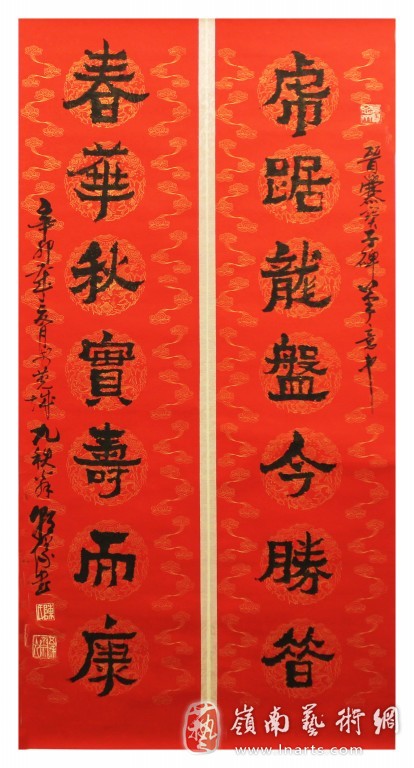 虎踞龍盤今勝昔
晉爨寶子碑筆意
春華秋實壽而康
辛卯年
九秩翁
嶺南藝術網
www.lnarts.com